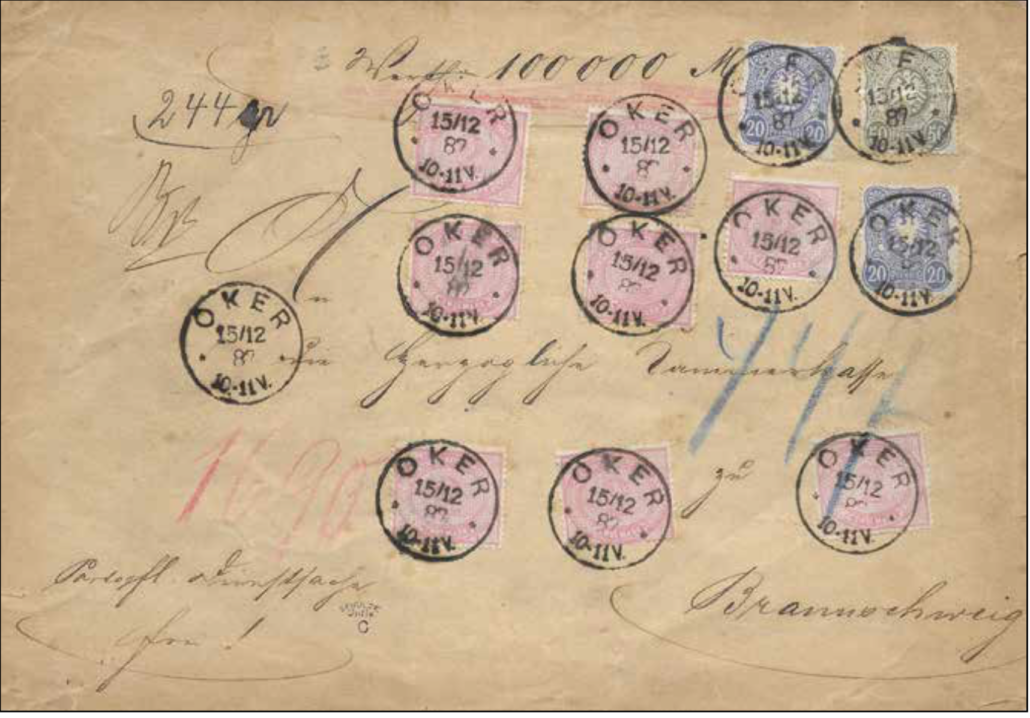 Werth: 100000 M
244 gr
OKER
15/12
87
10-11V.
OKER
15/12
8
10-11V.
OKER
15/12
87
10-11V.
20 20
OKER
15/12
87
50 50
OKER
15/12
10-11V.
OKER
15/12
10-11V.
OKER
15/12
10-11V.
OKER
15/12
10-11V.
20 20
OKER
15/12
10-11V.
An
die Herzogliche Cammerkasse
OKER
15/12
10-11V.
OKER
15/12
10-11V.
zu
OKER
15/12
10-11V.
Portopfl. Dienstsache
frei!
Braunschweig